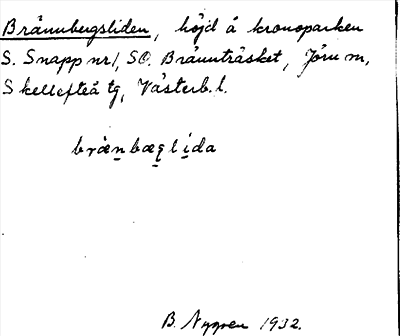 Brännbergsliden, höjd å kronoparken
S. Snapp nr 1, SO. Brännträsket, Jörn sn,
Skellefteå tg, Västerb. l.
brän̲bæg̲li̲da
B. Nygren 1932.